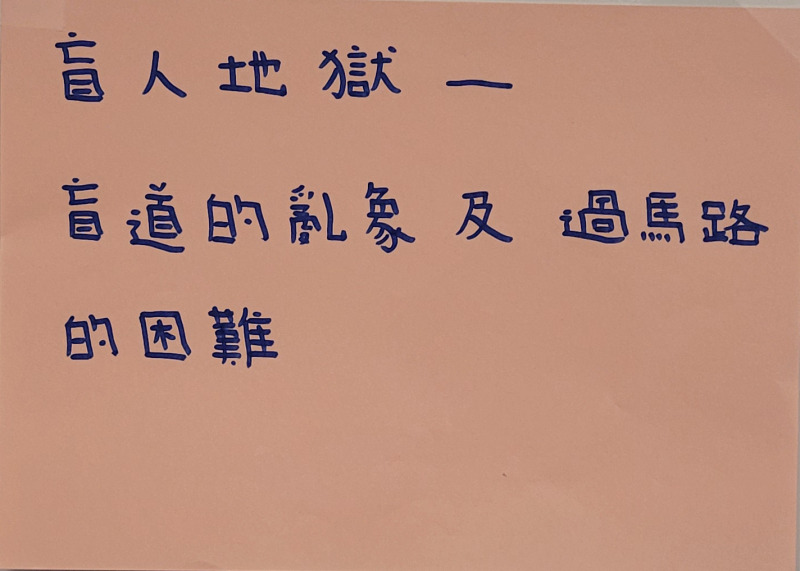 盲人地獄—
盲道的亂象及過馬路
的困難